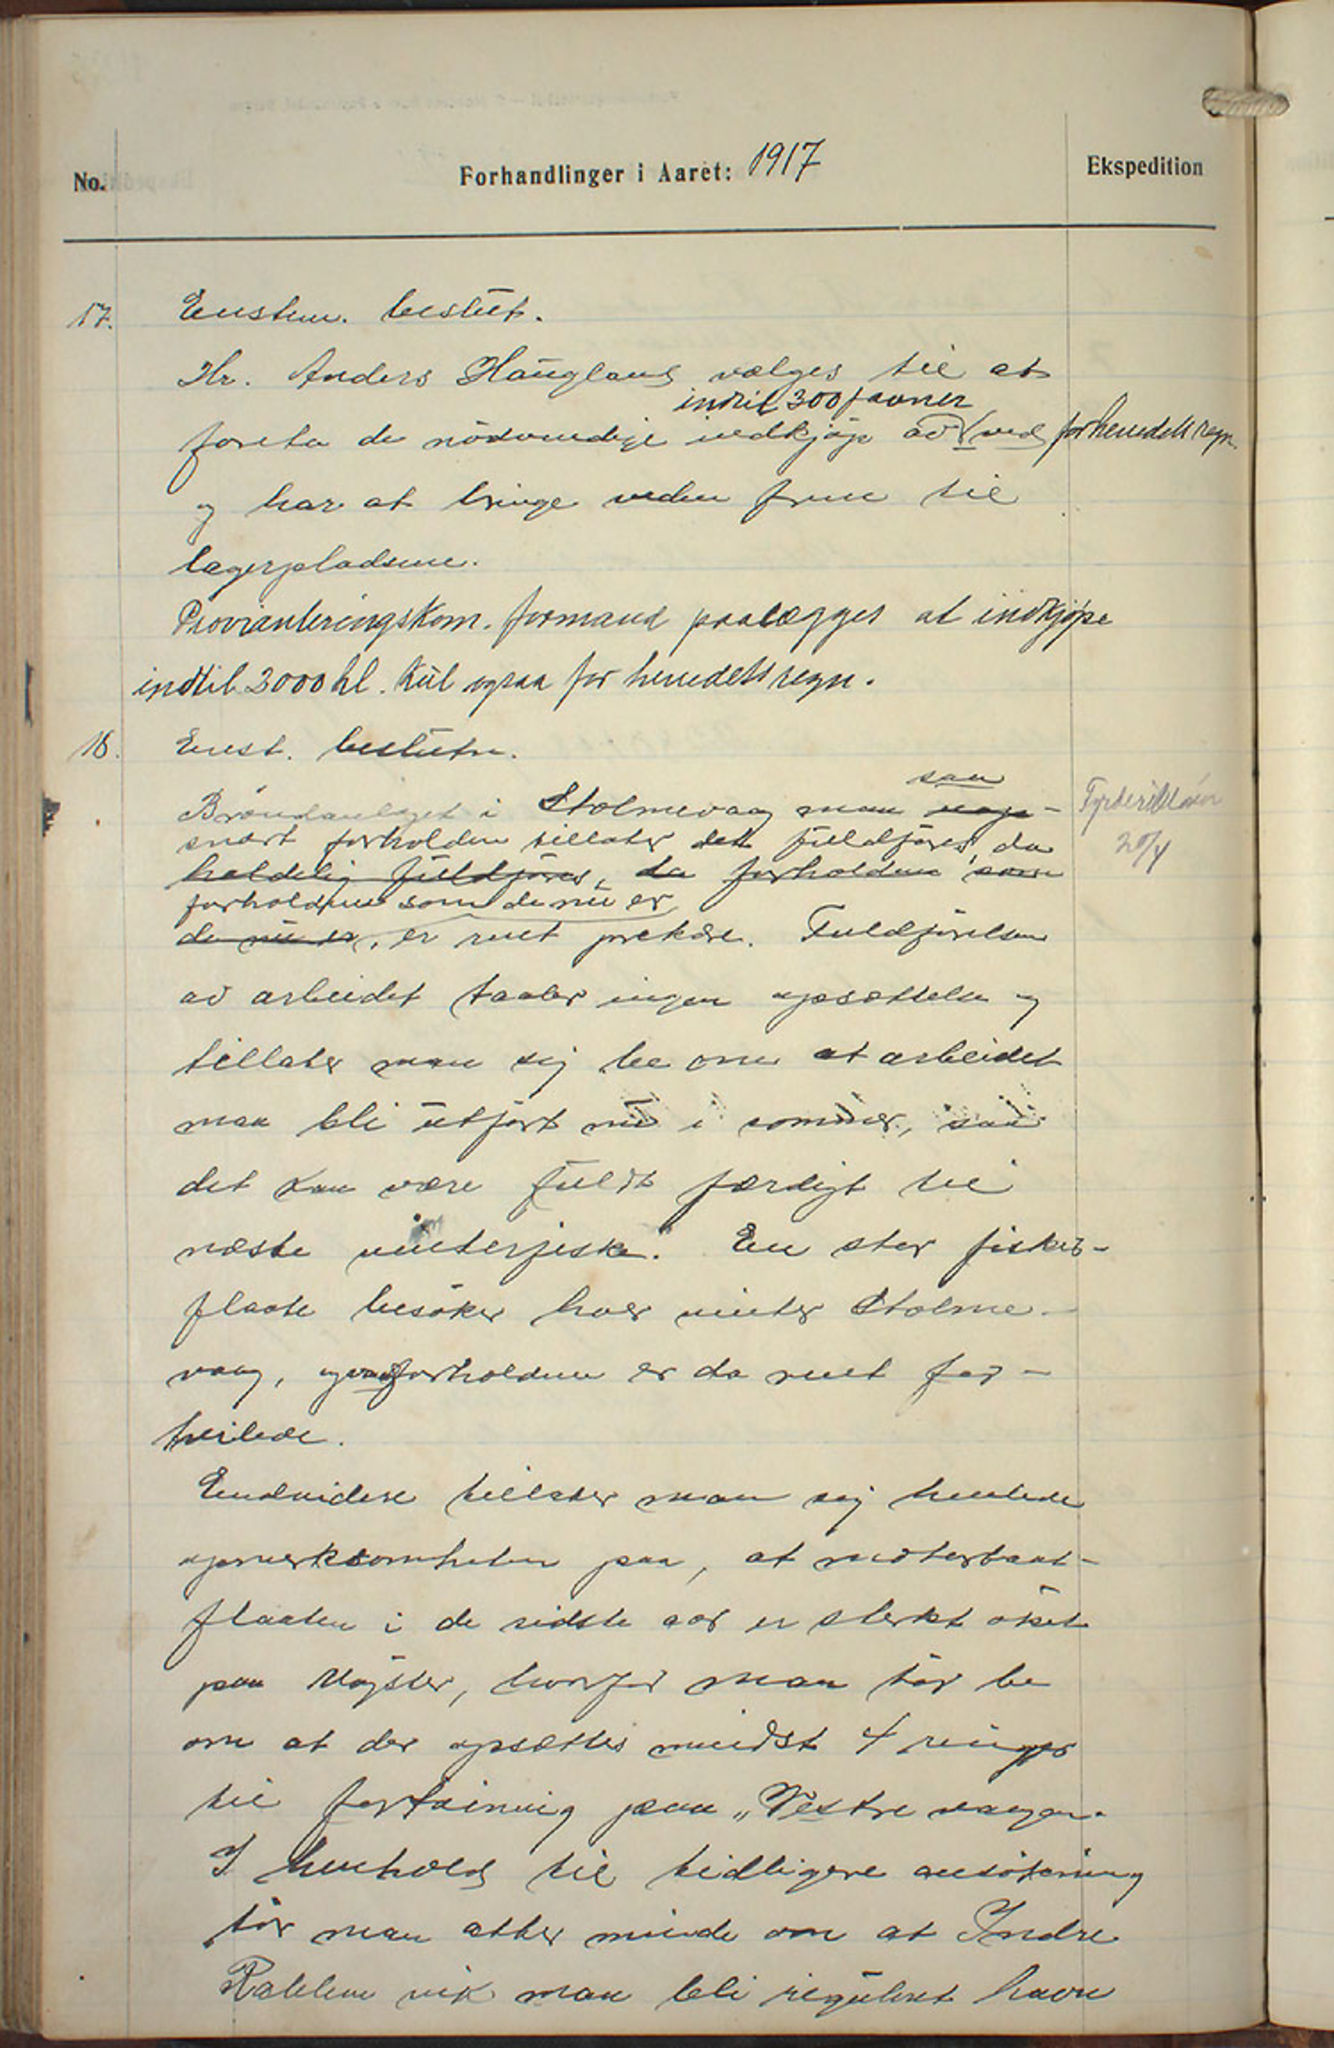 No.
Forhandlinger i Aaret: 1917
Ekspedition
17. Enstem. beslut.
Hr. Anders Haugland vælges til at
indtil 300 favner
foreta de nödvendige indkjöp av ved for herredets regn.
og har at bringe veden frem til
lagerpladsene.
Provianteringskom. formand paalægges at indkjöpe
indtil 3000 hl. kul ogsaa for herredets regn.
18. Enst. beslutn.
saa
Bröndanlæget i Stolmevaag maa
snart forholden tillater det fuldföres, da
heldelig fuldföres, da forholdene som
forholdene som de nu er
de nu er, er rent prekære. Fuldförelsen
av arbeidet taaler ingen opsættelse og
tillater man sig be om at arbeidet
maa bli utfört nu i sommer, saa
det kan være fuldt færdigt til
næste vinterfiske. En stor fisker-
flaate besöker hver vinter Stolme-
vaag, og vandforholdene er da rent for-
tvilede.
Endvidere tillater man sig henlede
opmerksomheten paa, at motorbaat-
flaaten i de sidste aar er sterkt öket
paa Mögster, hvorfor man tör be
om at der opsættes mindst 4 ringer
til fortöining paa „Vestre vaagen.
I henhold til tidligere ansökning
tör man atter minde om at Indre
vik maa bli regulert havn
20/4